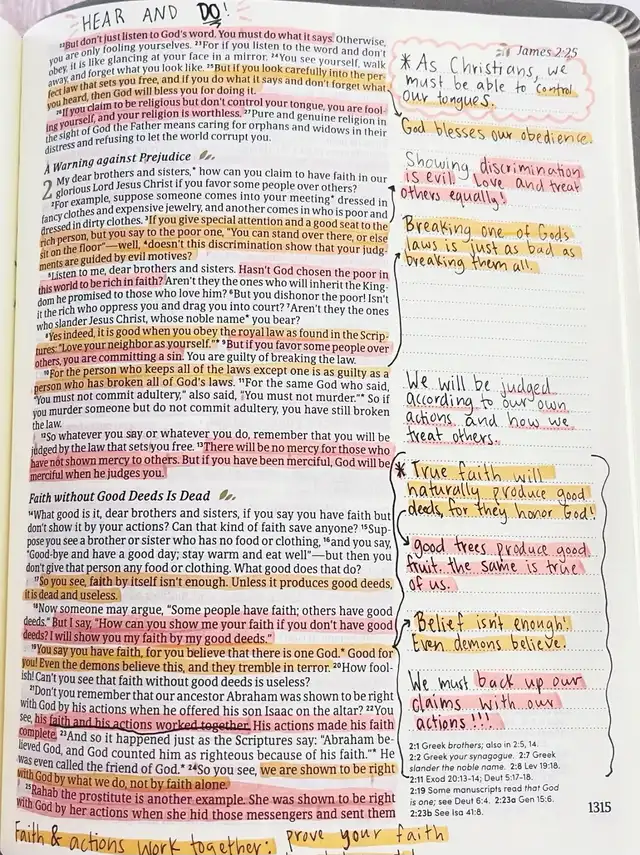 HEAR AND DO!
James 2:25
²²But don't just listen to God's word. You must do what it says. Otherwise,
you are only fooling yourselves. ²³For if you listen to the word and don't
obey, it is like glancing at your face in a mirror. ²⁴You see yourself, walk
away, and forget what you look like. ²⁵But if you look carefully into the per-
fect law that sets you free, and if you do what it says and don't forget what
you heard, then God will bless you for doing it.
²⁶If you claim to be religious but don't control your tongue, you are fool-
ing yourself, and your religion is worthless. ²⁷Pure and genuine religion in
the sight of God the Father means caring for orphans and widows in their
distress and refusing to let the world corrupt you.
A Warning against Prejudice
2 My dear brothers and sisters,* how can you claim to have faith in our
glorious Lord Jesus Christ if you favor some people over others?
²For example, suppose someone comes into your meeting* dressed in
fancy clothes and expensive jewelry, and another comes in who is poor and
dressed in dirty clothes. ³If you give special attention and a good seat to the
rich person, but you say to the poor one, "You can stand over there, or else
sit on the floor"—well, ⁴doesn't this discrimination show that your judg-
ments are guided by evil motives?
⁵Listen to me, dear brothers and sisters. Hasn't God chosen the poor in
this world to be rich in faith? Aren't they the ones who will inherit the King-
dom he promised to those who love him? ⁶But you dishonor the poor! Isn't
it the rich who oppress you and drag you into court? ⁷Aren't they the ones
who slander Jesus Christ, whose noble name* you bear?
⁸Yes indeed, it is good when you obey the royal law as found in the Scrip-
tures: "Love your neighbor as yourself."* ⁹But if you favor some people over
others, you are committing a sin. You are guilty of breaking the law.
¹⁰For the person who keeps all of the laws except one is as guilty as a
person who has broken all of God's laws. ¹¹For the same God who said,
"You must not commit adultery," also said, "You must not murder."* So if
you murder someone but do not commit adultery, you have still broken
the law.
¹²So whatever you say or whatever you do, remember that you will be
judged by the law that sets you free. ¹³There will be no mercy for those who
have not shown mercy to others. But if you have been merciful, God will be
merciful when he judges you.
Faith without Good Deeds Is Dead
¹⁴What good is it, dear brothers and sisters, if you say you have faith but
don't show it by your actions? Can that kind of faith save anyone? ¹⁵Sup-
pose you see a brother or sister who has no food or clothing, ¹⁶and you say,
"Good-bye and have a good day; stay warm and eat well"—but then you
don't give that person any food or clothing. What good does that do?
¹⁷So you see, faith by itself isn't enough. Unless it produces good deeds,
it is dead and useless.
¹⁸Now someone may argue, "Some people have faith; others have good
deeds." But I say, "How can you show me your faith if you don't have good
deeds? I will show you my faith by my good deeds."
¹⁹You say you have faith, for you believe that there is one God.* Good for
you! Even the demons believe this, and they tremble in terror. ²⁰How fool-
ish! Can't you see that faith without good deeds is useless?
²¹Don't you remember that our ancestor Abraham was shown to be right
with God by his actions when he offered his son Isaac on the altar? ²²You
see, his faith and his actions worked together. His actions made his faith
complete. ²³And so it happened just as the Scriptures say: "Abraham be-
lieved God, and God counted him as righteous because of his faith."* He
was even called the friend of God.* ²⁴So you see, we are shown to be right
with God by what we do, not by faith alone.
²⁵Rahab the prostitute is another example. She was shown to be right
with God by her actions when she hid those messengers and sent them
* As Christians, we
must be able to control
our tongues.
God blesses our obedience.
Showing discrimination
is evil. Love and treat
others equally!
Breaking one of God's
laws is just as bad as
breaking them all.
We will be judged
according to our own
actions and how we
treat others.
* True faith will
naturally produce good
deeds, for they honor God!
good trees produce good
fruit. the same is true
of us.
Belief isn't enough!
Even demons believe!
We must back up our
claims with our
actions!!!
2:1 Greek brothers; also in 2:5, 14.
2:2 Greek your synagogue. 2:7 Greek
slander the noble name. 2:8 Lev 19:18.
2:11 Exod 20:13-14; Deut 5:17-18.
2:19 Some manuscripts read that God
is one; see Deut 6:4. 2:23a Gen 15:6.
2:23b See Isa 41:8.
1315
Faith & actions work together: prove your faith